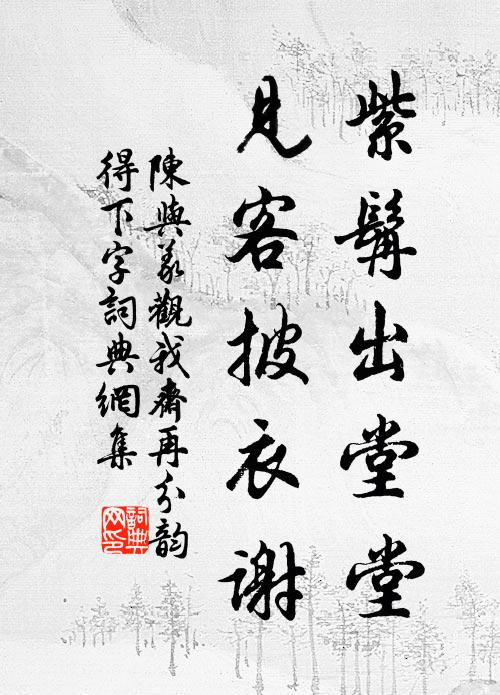 紫髯出堂堂
見客披衣謝
陳與義觀我齋再分韵
得下字詞典網集
詞典網印